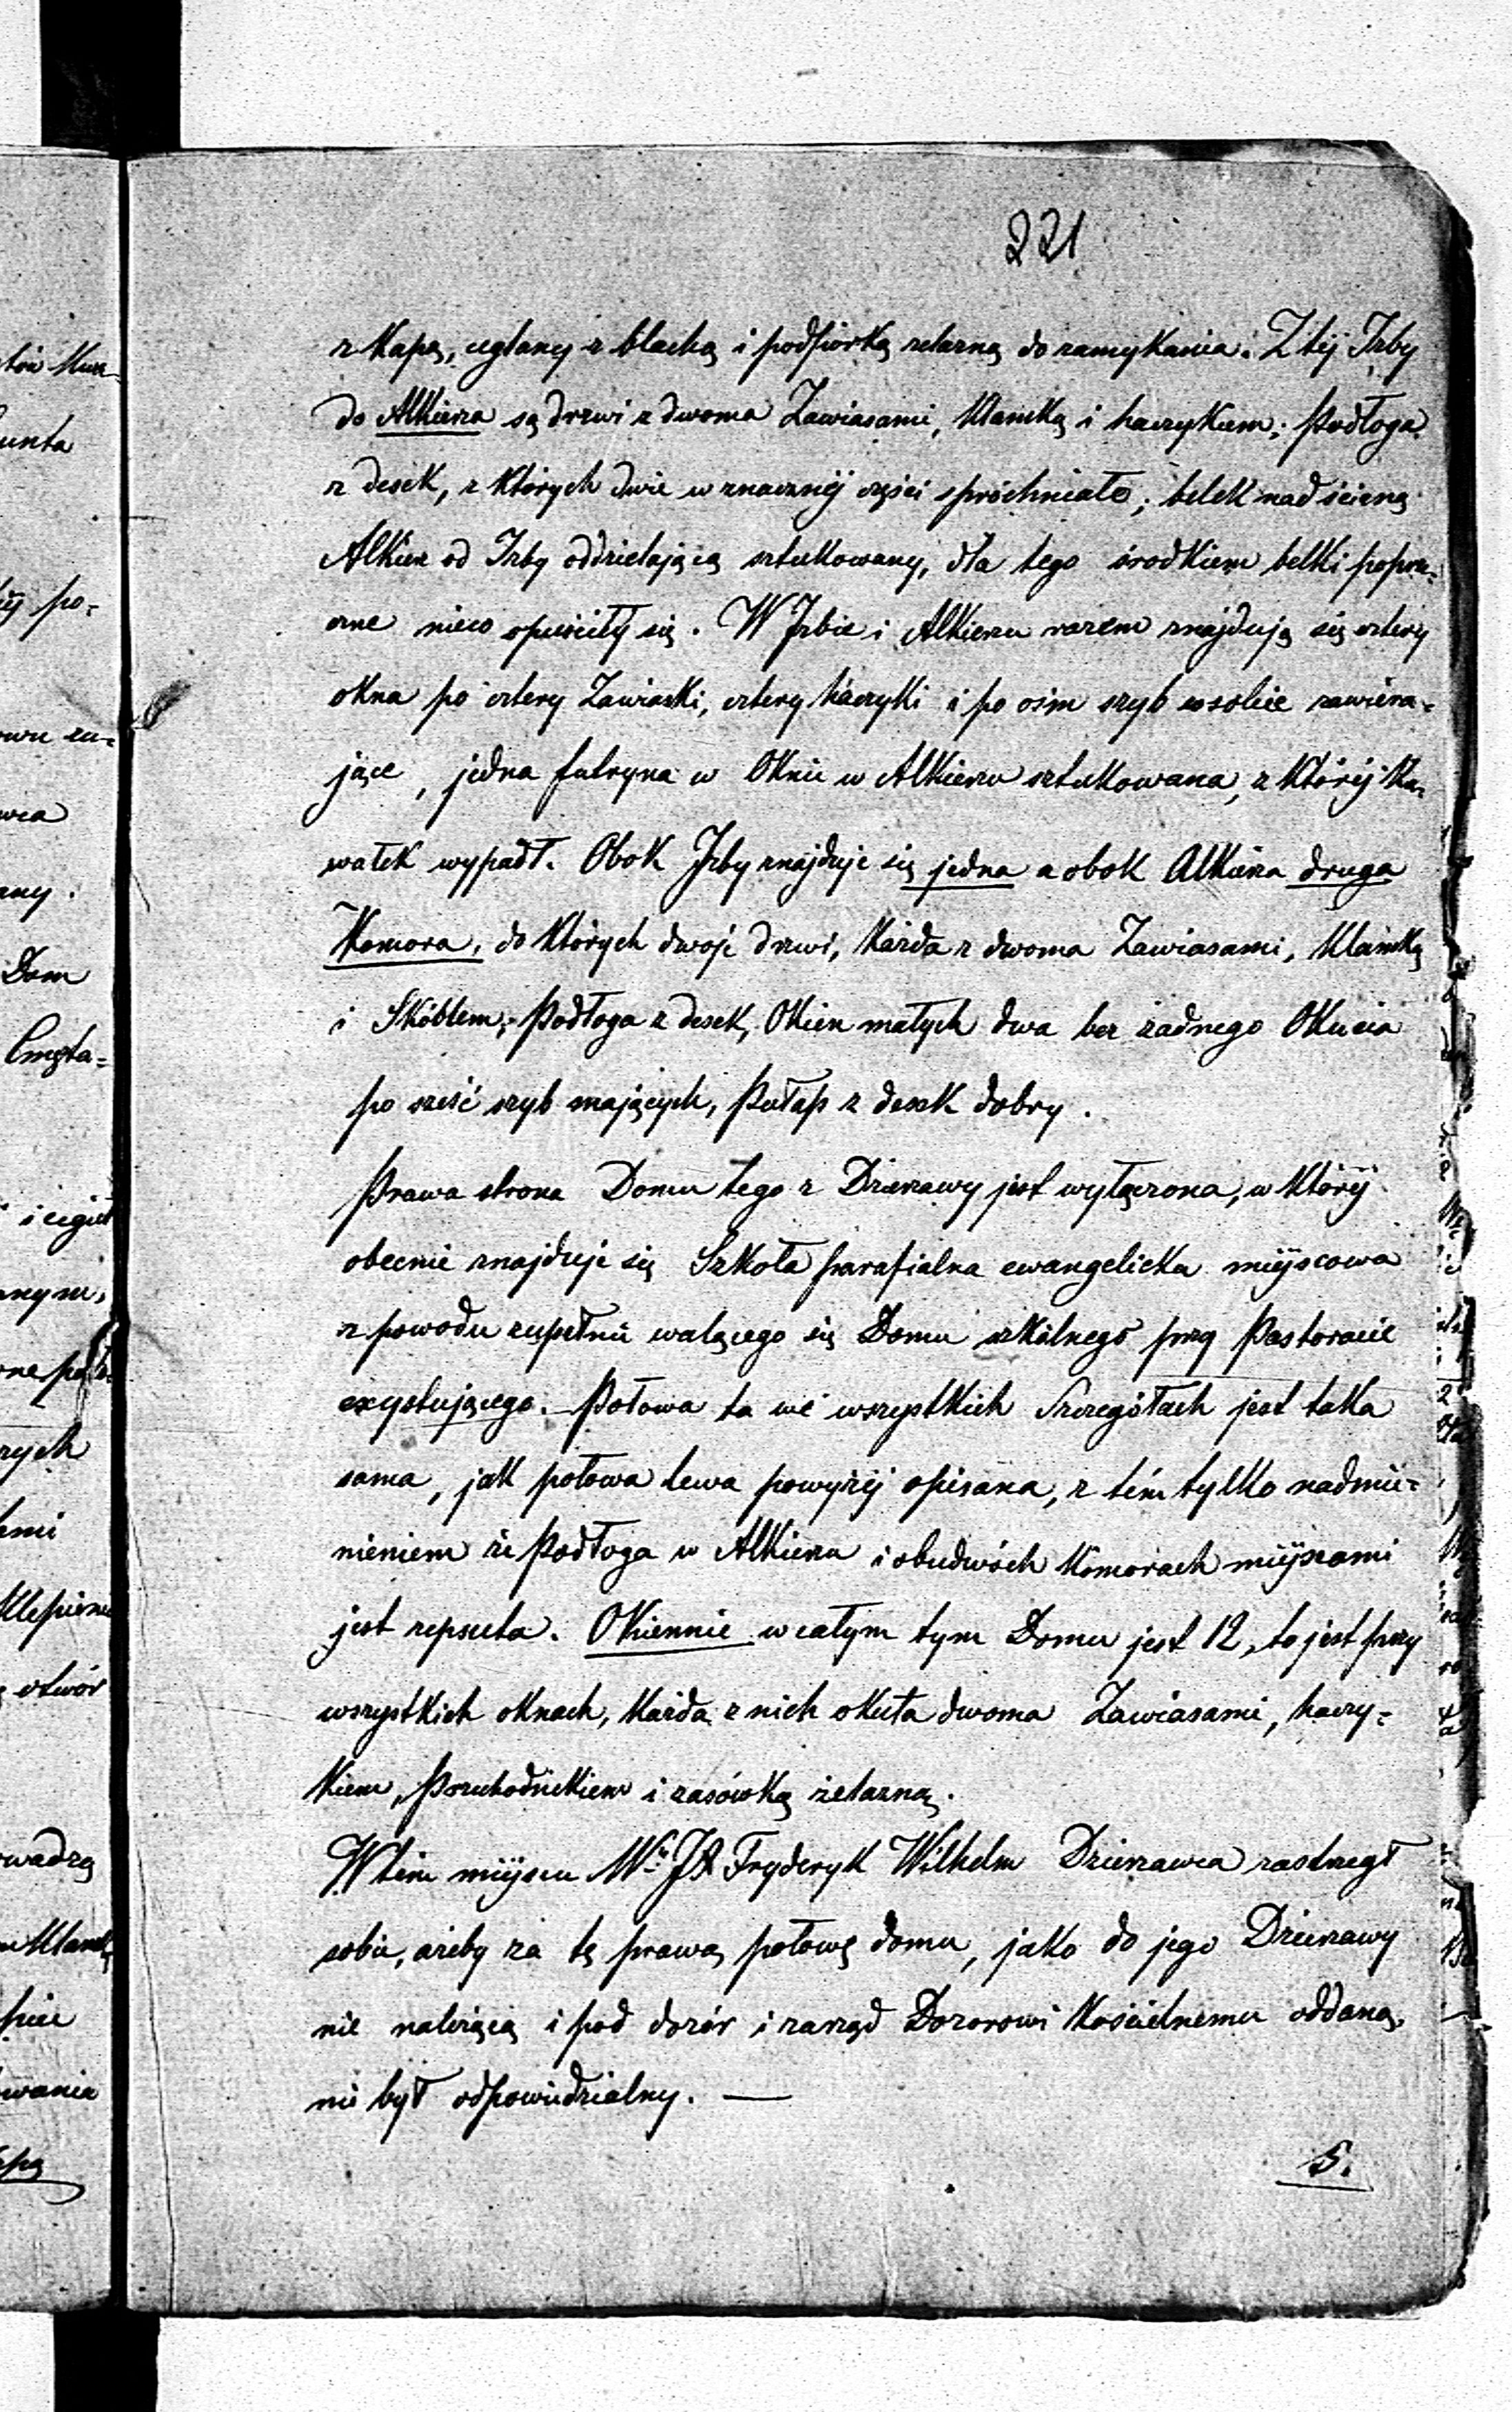 221
z Kapą, ceglany z blachą i podpiórką żelazną do zamykania. Z tej Izby
do Alkierza są drzwi z dwoma Zawiasami, Klamką i haczykiem; Podłoga
z desek, z których dwie w znacznéj części spróchniałe; belek nad ścianą
Alkierz od Izby oddzielającą sztukowany, dla tego środkiem belki poprze=
czne nieco opuściły się. W Izbie i Alkierzu razem znajdują się cztery
okna po cztery Zawiaski, cztery haczyki i po ośm szyb w sobie zawiera=
jące, jedna futryna w Oknie w Alkierzu sztukowana, z któréj Ka=
wałek wypadł. Obok Izby znajduje się jedna a obok Alkierza druga
Komora, do których dwoje drzwi, Każda z dwoma Zawiasami, Klamką
i Skóblem; Podłoga z desek, Okien małych dwa bez żadnego Okucia
po sześć szyb mających, Pułap z desek dobry.
Prawa strona Domu tego z Dzierżawy jest wyłączona, w któréj
obecnie znajduje się Szkoła parafialna ewangelicka miéjscowa
z powodu zupełnie walącego się Domu szkólnego przy Pastoracie
exystującego. Połowa ta we wszystkich Szczegółach jest taka
sama, jak połowa lewa powyżéj opisana, z tém tylko nadmie=
nieniem że Podłoga w Alkierzu i obudwóch Komorach miéjscami
jest zepsuta. Okiennic w całym tym Domu jest 12, to jest przy
wszystkich oknach, Każda z nich okuta dwoma Zawiasami, haczy=
Kiem, Przechodnikiem i zasówką żelazną.
W tém miéjscu Wny JP Fryderyk Wilhelm Dzierżawca zastrzegł
sobie, ażeby za tę prawą połowę domu, jako do jego Dzierżawy
nie należącą i pod dozór i zarząd Dozorowi Kościelnemu oddaną,
nie był odpowiedzialny. —
5.